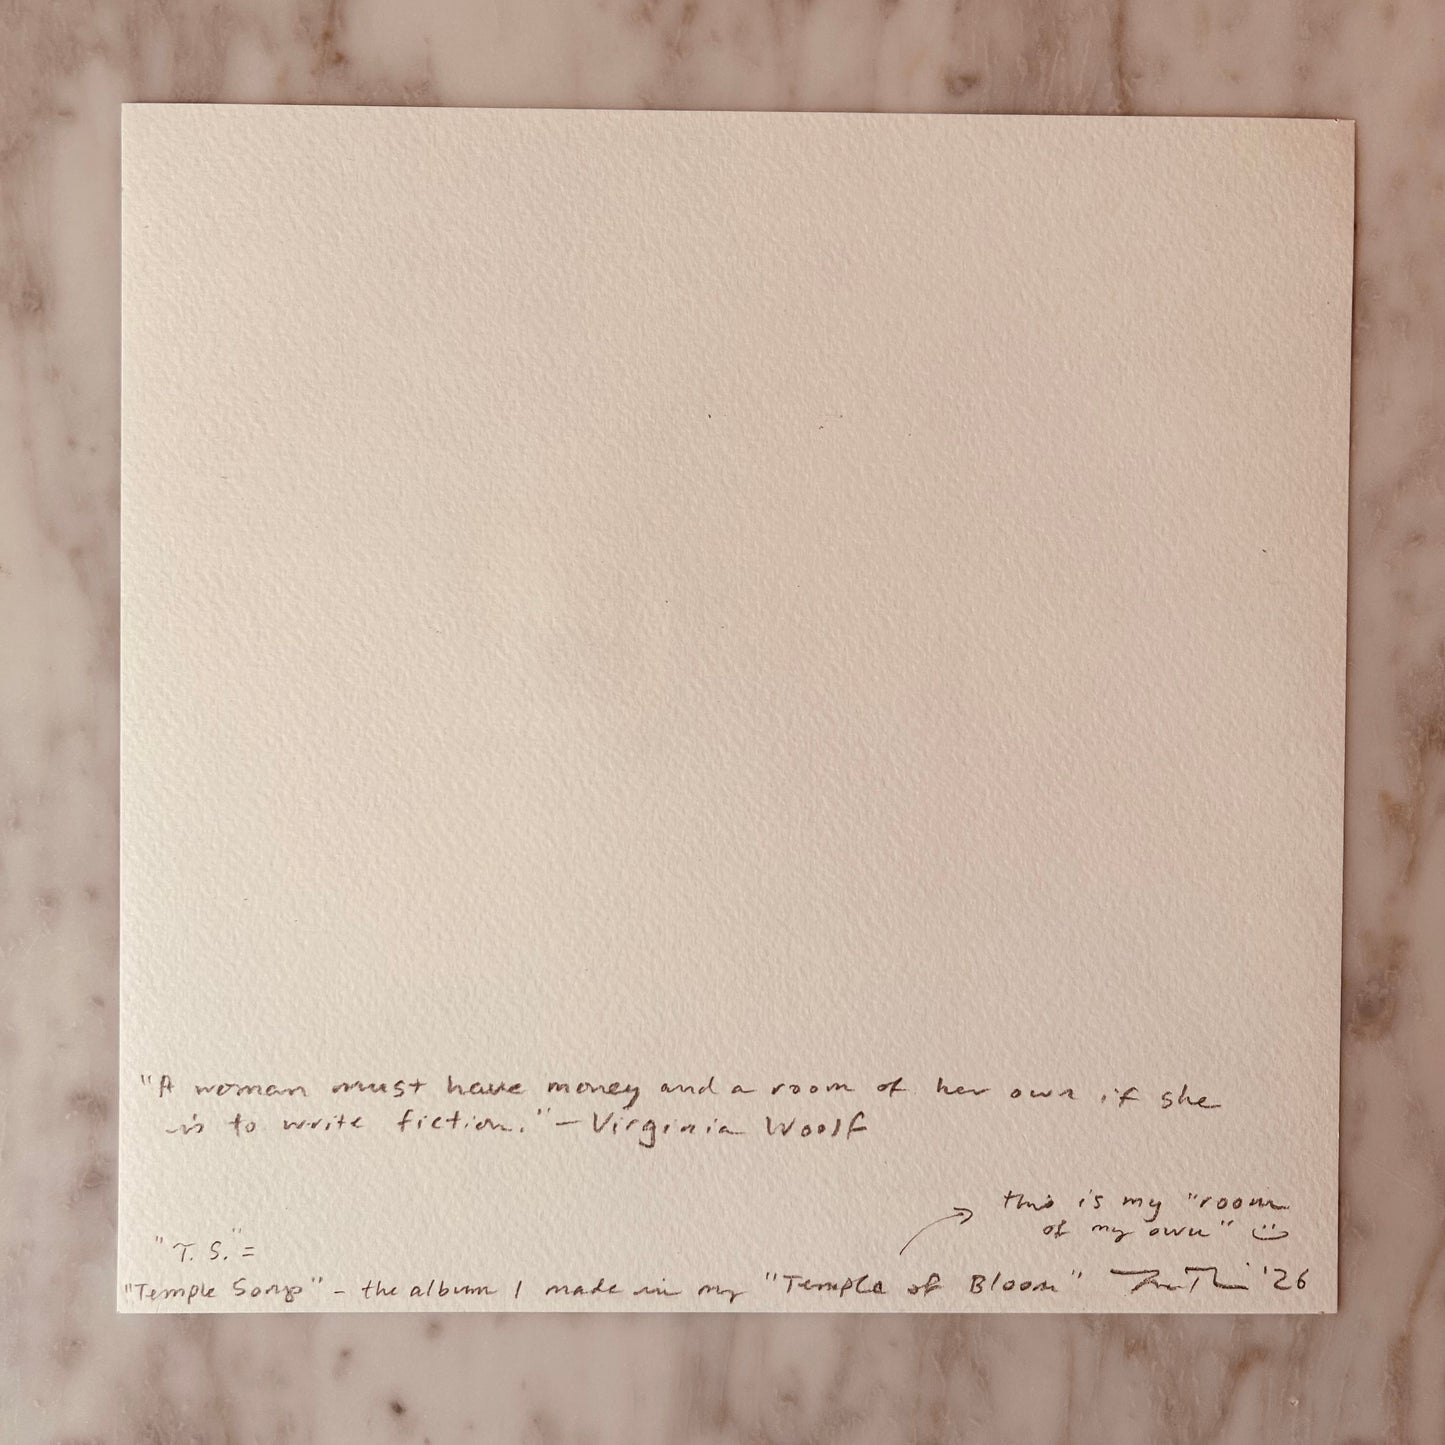 "A woman must have money and a room of her own if she
is to write fiction." – Virginia Woolf
this is my "room
of my own"
"T. S." =
"Temple Songs" – the album I made in my "Temple of Bloom" '26